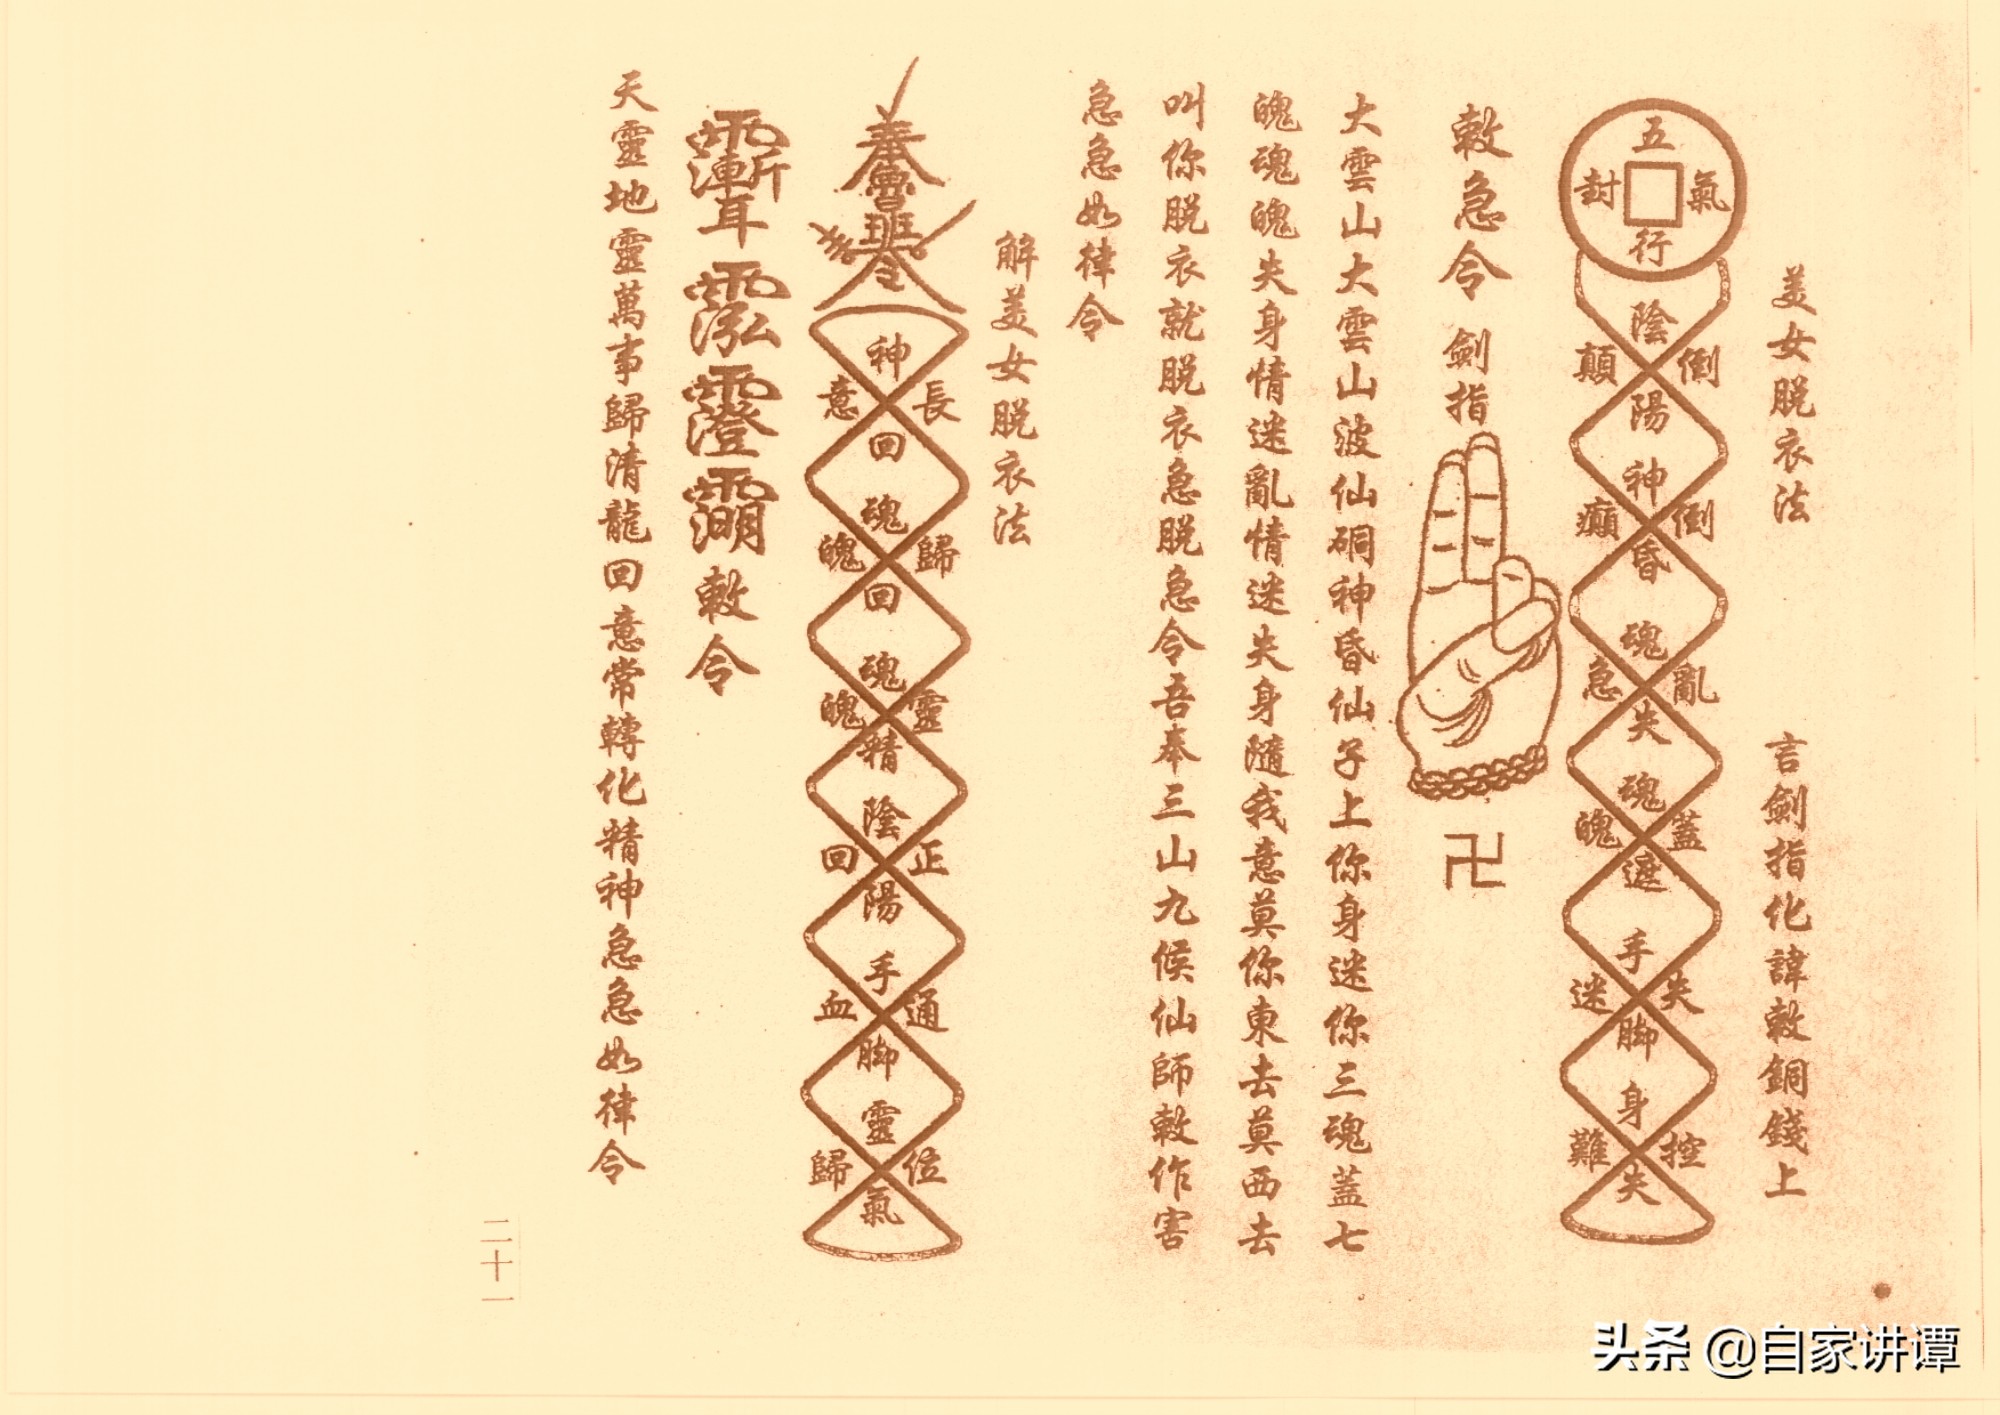 美女脱衣法 言劍指化諱敕銅錢上
五氣行封
陰
顛倒
陽
神
癲倒
昏
魂
急亂
失
魂
魄蓋
遮
手
迷失
脚
身
難控
失
敕急令 劍指
卍
大雲山大雲山波仙硐神昏仙子上你身迷你三魂蓋七
魄魂魄失身情迷亂情迷失身隨我意莫你東去莫西去
叫你脱衣就脱衣急脱急令吾奉三山九候仙師敕作害
急急如律令
解美女脱衣法
奉魯班令
神
意長
回
魂
魄歸
回
魂
魄靈
精
陰
回正
陽
手
血通
脚
靈
歸位
氣
敕令
天靈地靈萬事歸清龍回意常轉化精神急急如律令
二十一
头条 @自家讲谭